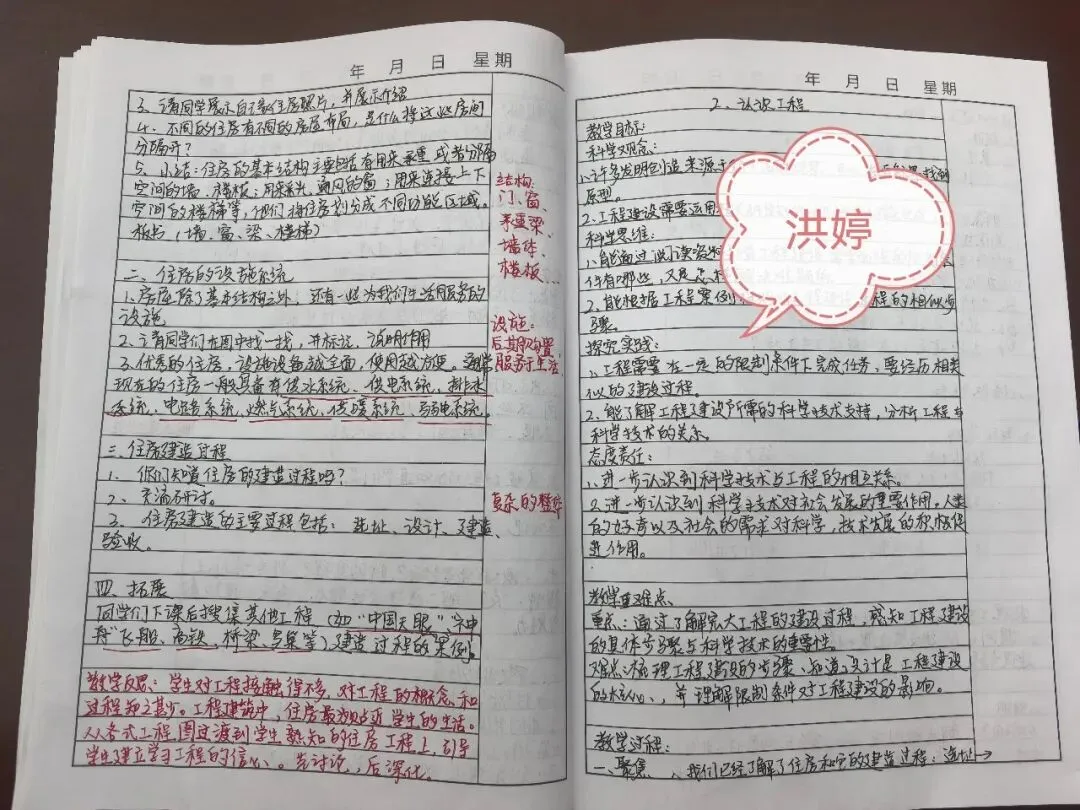 年 月 日 星期
3、请同学展示自己家住房照片，并展示介绍
4、不同的住房有不同的房屋布局，是什么将这些房间
分隔开？
5、小结：住房的基本结构主要包括有用来承重或者分隔
空间的墙、楼板；用来采光、通风的窗；用来连接上下
空间的楼梯等，他们将住房划分成不同功能区域。
板书（墙、窗、梁、楼梯）
二、住房的设施系统
1、房屋除了基本结构之外，还有一些为我们生活服务的
设施
2、请同学们在图中找一找，并标记，说明作用
3、优秀的住房，设施设备越全面，使用越方便。通常
现在的住房一般具备有供水系统、供电系统、排水
系统、电路系统、燃气系统、供暖系统、弱电系统。
三、住房建造过程
1、你们知道住房的建造过程吗？
2、交流研讨。
3、住房建造的主要过程包括：选址、设计、建造、
验收。
四、拓展
同学们下课后搜集其他工程（如"中国天眼"、神
舟飞船、高铁、桥梁、等）建造过程的案例。
教学反思：学生对工程接触得不多，对工程的概念和
过程知之甚少。工程建筑中，住房最贴近学生的生活。
从各式工程图过渡到学生熟知的住房工程上，引导
学生建立学习工程的信心。先讨论，后深化。
结构：
门、窗、
承重梁、
墙体、
楼板…
设施：
后期购置，
服务于生活
复杂的整体
年 月 日 星期
2、认识工程
教学目标：
科学观念：
1、许多发明创造来源于
找到
原型。
2、工程建设需要运用
科学思维：
1、能通过识读资料
件有哪些，又是怎
2、能根据工程案例
程的相似步
骤。
探究实践：
1、工程需要在一定的限制条件下完成任务，要经历相类
似的建设过程。
2、能了解工程建设所需的科学技术支撑，分析工程与
科学技术的关系。
态度责任：
1、进一步认识到科学技术与工程的相互关系。
2、进一步认识到科学技术对社会发展的重要作用，人类
的好奇以及社会的需求对科学、技术发展的积极促
进作用。
教学重难点
重点：通过了解宏大工程的建设过程，感知工程建设
的具体步骤与科学技术的重要性。
难点：梳理工程建设的步骤，知道设计是工程建设
的核心，并理解限制条件对工程建设的影响。
教学过程：
一、聚焦 1、我们已经了解了住房和它的建造过程：选址→
洪婷